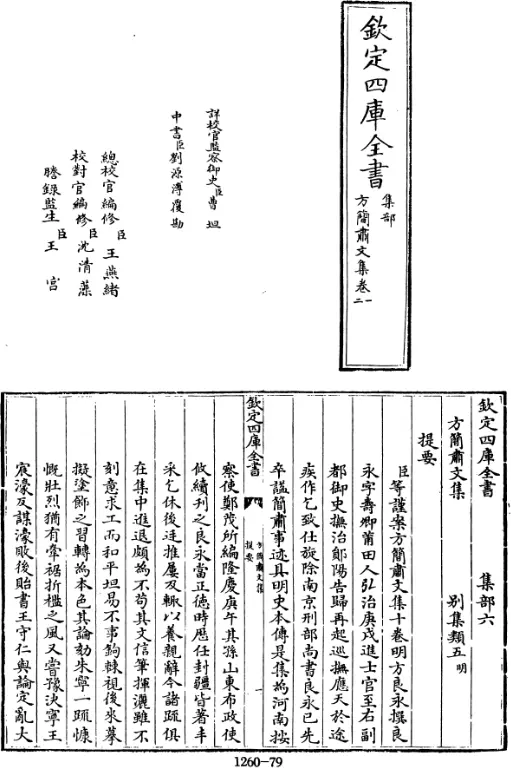 欽定四庫全書
集部
方簡肅文集卷一
二
詳校官監察御史臣曹坦
中書臣劉源溥覆勘
總校官編修臣王燕緒
校對官編修臣沈清藻
謄錄監生臣王宫
欽定四庫全書　集部六
方簡肅文集　别集類五明
提要
臣等謹案方簡肅文集十卷明方良永撰良
永字壽卿莆田人弘治庚戌進士官至右副
都御史撫治鄖陽告歸再起巡撫應天於途
疾作乞致仕旋除南京刑部尚書良永已先
卒諡簡肅事迹具明史本傳是集為河南按
欽定四庫全書
方簡肅文集
提要
一
察使鄭茂所編隆慶庚午其孫山東布政使
攸續刊之良永當正德時歴任封疆皆著丰
采乞休後迭推屢及輒以養親辭今諸疏俱
在集中進退頗為不苟其文信筆揮灑雖不
刻意求工而和平坦易不事鉤棘視後來摹
擬塗飾之習轉為本色其論劾朱寧一疏慷
慨壯烈猶有牽裾折檻之風又嘗豫決寧王
宸濠反謀濠敗後貽書王守仁與論定亂大
1260-79